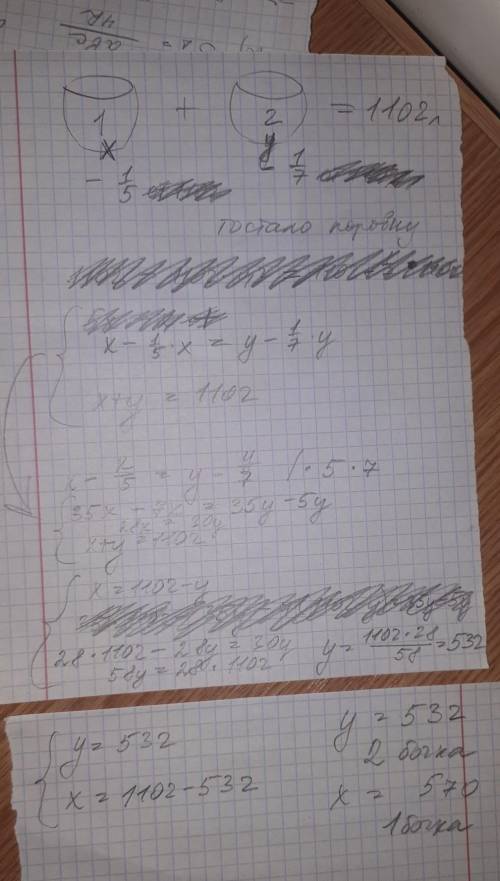 1 + 2 = 1102л
x y
- 1/5 - 1/7
поровну
x - 1/5 · x = y - 1/7 · y
x+y = 1102
- x/5 = y - y/7 / · 5 · 7
35x - 7x = 35y - 5y
28x = 30y
x+y = 1102
x = 1102 - y
28 · 1102 - 28y = 30y y = 1102·28/58 = 532
58y = 28 · 1102
y = 532 y = 532
2 бочка
x = 1102 - 532 x = 570
1 бочка